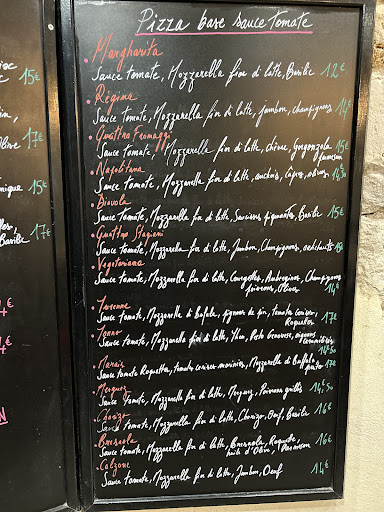 Pizza base sauce tomate
Margharita
Sauce tomate, Mozzarella fior di latte, Basilic 12€
Régina
Sauce tomate, Mozzarella fior di latte, jambon, champignons 14€
Quattro Fromaggi
Sauce tomate, Mozzarella fior di latte, chèvre, Gorgonzola 15€
Napolitana
Sauce Tomate, Mozzarella fior di latte, anchois, câpres, olives 14,50
Diavola
Sauce tomate, Mozzarella fior di latte, Saucisses piquantes, Basilic 15€
Quattro Stagioni
Sauce tomate, Mozzarella fior di latte, Jambon, Champignons, artichauts
Vegetariana
Sauce tomate, Mozzarella fior di latte, Courgettes, Aubergines, Champignons
poivrons, Olives 14€
Sauce tomate, Mozzarella di Bufala, pignons de pin, tomates cerises,
Roquette 17€
Sauce tomate, Mozzarella fior di latte, Thon, Pesto Genovese, oignons
14,50
Marais
Sauce tomate, Roquette, tomates cerises marinées, Mozzarella di Buffala
17€
Merguez
Sauce tomate, Mozzarella fior di latte, Merguez, Poivrons grillés 14,50
Chorizo
Sauce Tomate, Mozzarella fior di latte, Chorizo, Oeuf, Basilic 16€
Bresaola
Sauce tomate, Mozzarella fior di latte, Bresaola, Roquette,
huile d'Olive, Parmesan 16€
Calzone
Sauce tomate, Mozzarella fior di latte, Jambon, Oeuf 14€
15€
17€
15€
Basilic 17€